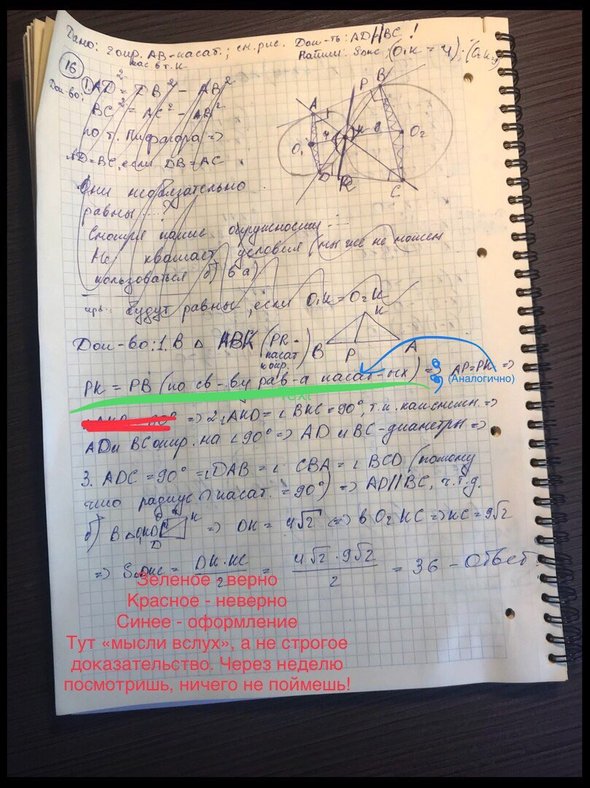 Дано: 2 окр. AB-касат.; см. рис. Док-ть: AD||BC!
кас в т. К
Найти: Sокс (O₁K = 4);
16
1. AD² = DB² - AB²
Док-во:
BC² = AC² - AB²
по т. Пифагора =>
AD=BC, если DB=AC
Они необязательно
равны...?
Смотря какие окружности...
Не хватает условия (мы же не можем
пользоваться б) в а)
будут равны, если O₁K=O₂K
P
B
A
O₁
O₂
D
C
Док-во: 1. В △ ABK (PK-
касат
окр.
K
B
P
A
PK = PB (по св-ву рав-а касат-ых) => AP=PK =>
(Аналогично)
=> 2. ∠AKD = ∠BKC = 90°, т.к. как смежн. =>
AD и BC опир. на ∠90° => AD и BC-диаметры =>
3. ADC = 90° = ∠DAB = ∠ CBA = ∠ BCD (потому
что радиус ∩ касат. = 90°) => AD||BC, ч.т.д.
б) В
K
D
=> DK = 4√2 => в O₂KC => KC = 9√2
=> S = DK·KC / 2 = 4√2 · 9√2 / 2 = 36 - Ответ.
Зеленое - верно
Красное - неверно
Синее - оформление
Тут «мысли вслух», а не строгое
доказательство. Через неделю
посмотришь, ничего не поймешь!